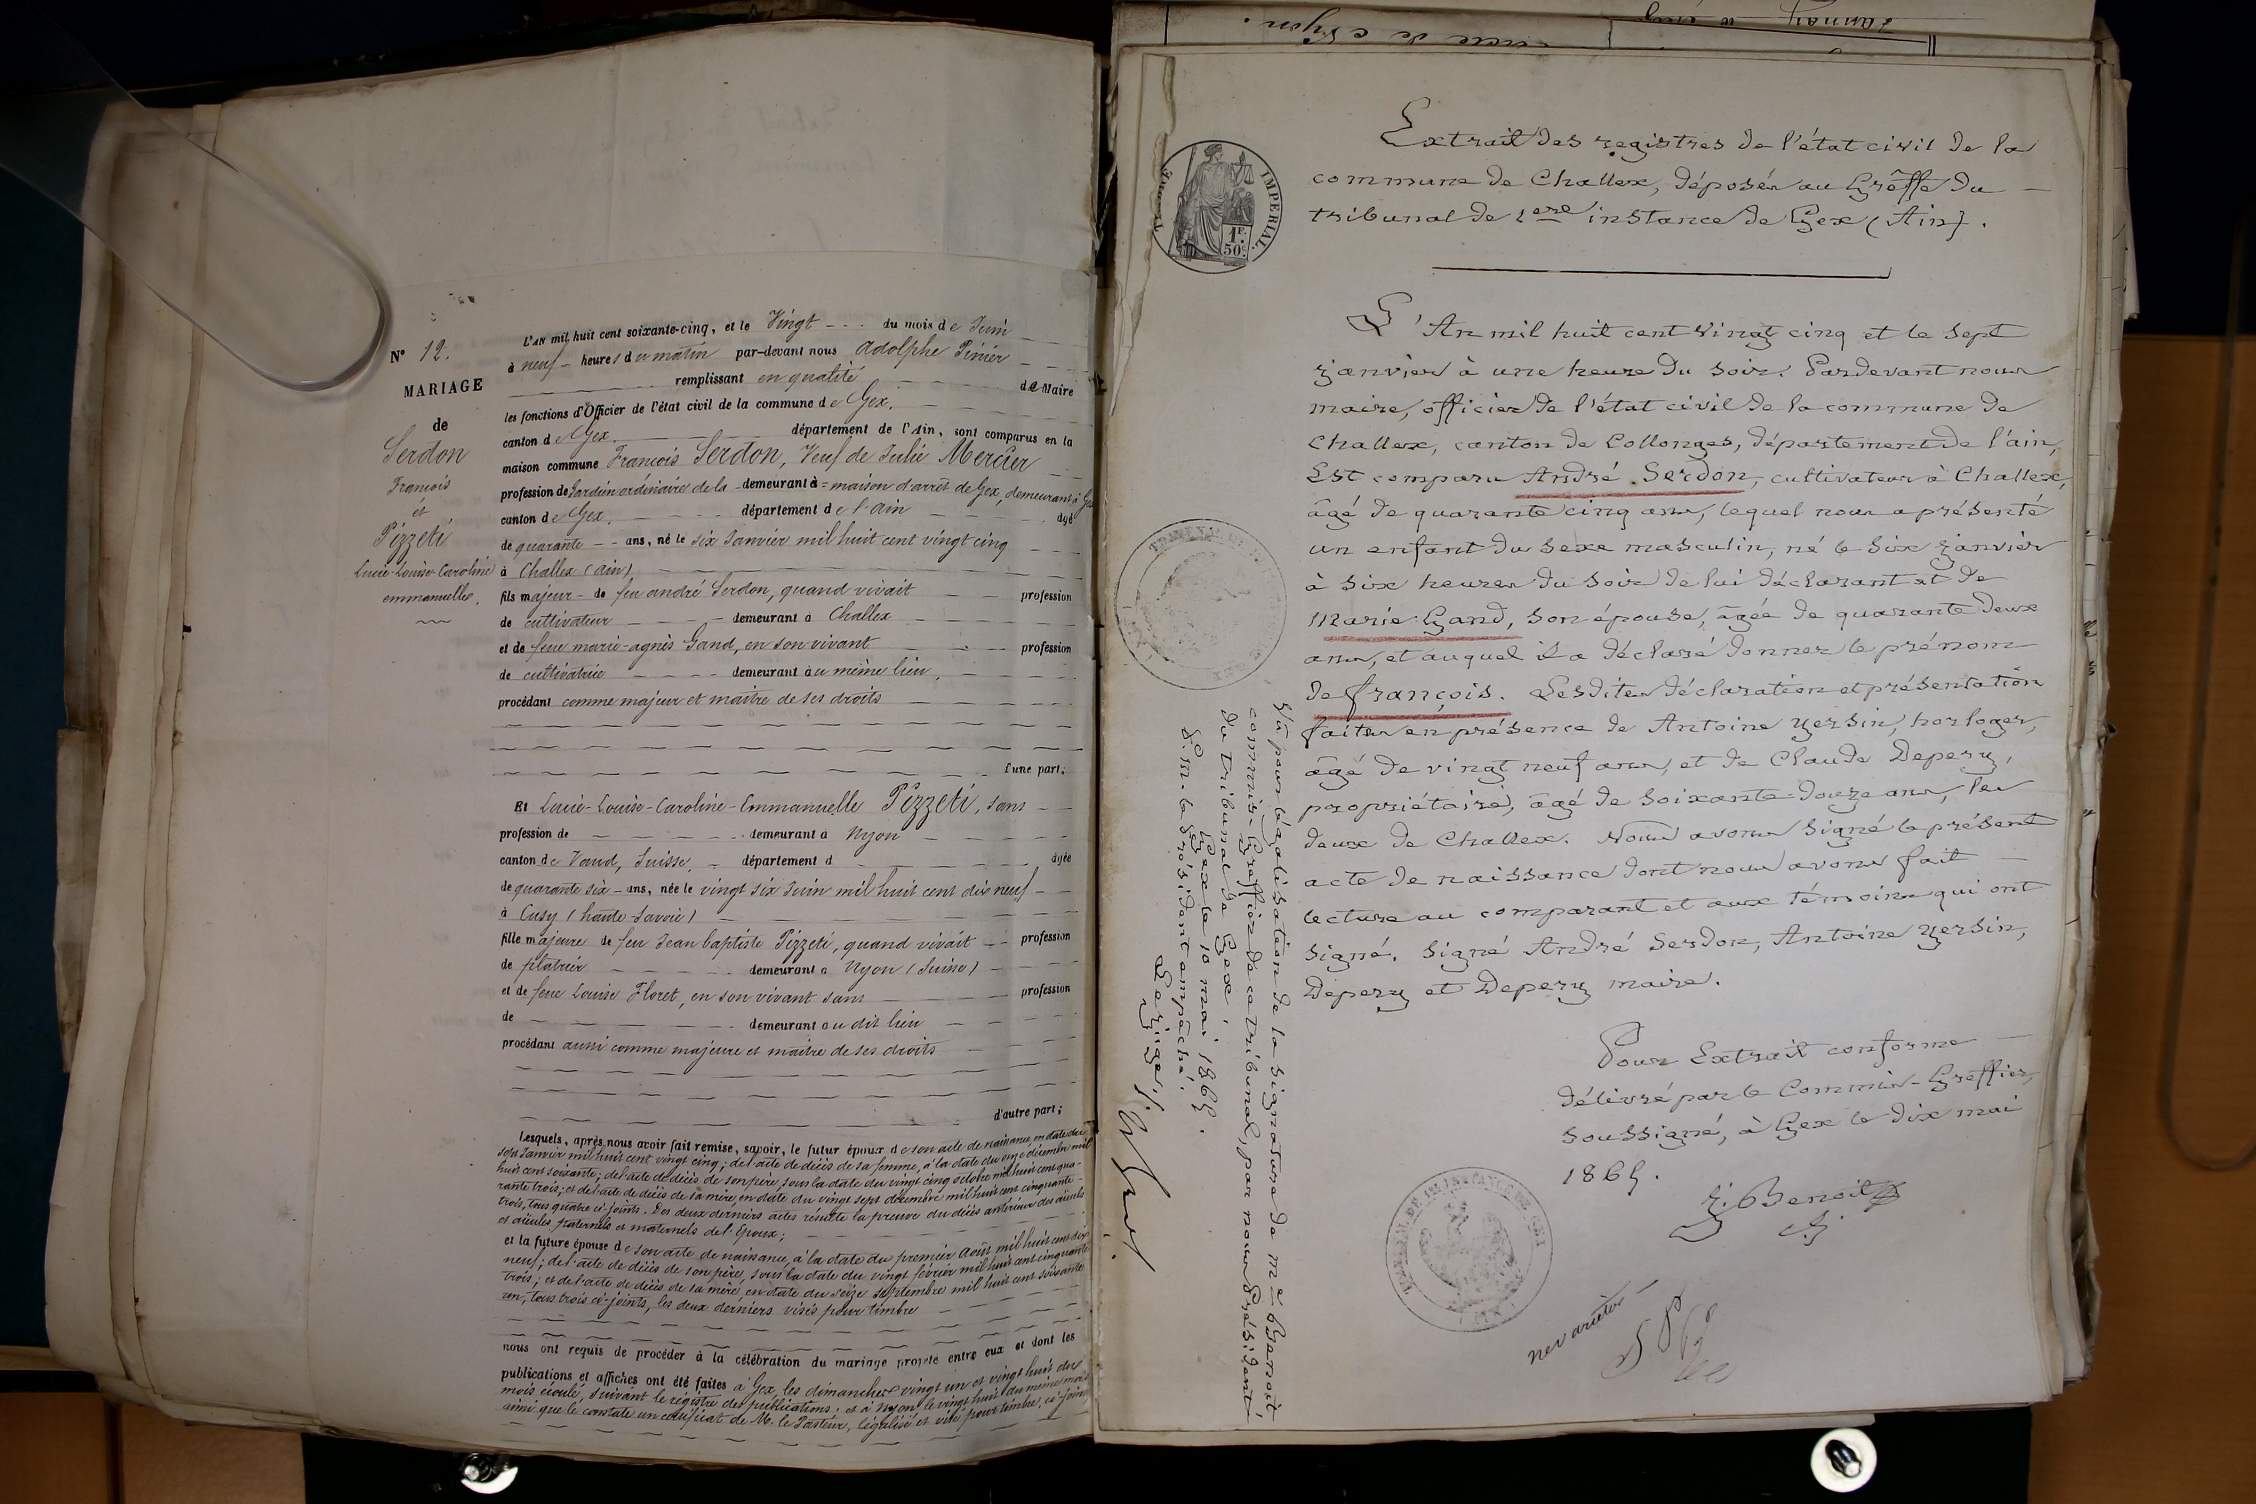 N° 12.
MARIAGE
de
Serdon
François
et
Pizzeti
Lucie-Louise-Caroline
emmanuelle.
L'AN mil huit cent soixante-cinq, et le Vingt du mois de Juin
à neuf heures du matin par-devant nous Adolphe Pinier
remplissant en qualité de Maire
les fonctions d'Officier de l'état civil de la commune de Gex.
canton de Gex. département de l'Ain, sont comparus en la
maison commune François Serdon, Veuf de Julie Mercier
profession de Gardien ordinaire de la demeurant à maison d'arrêt de Gex, demeurant à Gex
canton de Gex. département de l'ain âgé
de quarante ans, né le six Janvier mil huit cent vingt cinq
à Challex (ain)
fils majeur de feu andré Serdon, quand vivait profession
de cultivateur demeurant à Challex
et de feue marie-agnès Gand, en son vivant profession
de cultivatrice demeurant au même lieu,
procédant comme majeur et maitre de ses droits
d'une part;
Et Lucie-Louise-Caroline-Emmanuelle Pizzeti, sans
profession de demeurant à Nyon
canton de Vaud, Suisse. département d âgée
de quarante six ans, née le vingt six Juin mil huit cent dix neuf
à Cusy (haute-Savoie)
fille majeure de feu Jean baptiste Pizzeti, quand vivait profession
de platrier demeurant à Nyon (Suisse)
et de feue Louise Floret, en son vivant sans profession
de demeurant au dit lieu
procédant aussi comme majeure et maitre de ses droits
d'autre part;
Lesquels, après nous avoir fait remise, savoir, le futur époux de son acte de naissance, en date du
sept Janvier mil huit cent vingt cinq; de l'acte de décès de sa femme, à la date du onze décembre mil
huit cent soixante; de l'acte de décès de son père, sous la date du vingt cinq octobre mil huit cent qua-
rante trois; et de l'acte de décès de sa mère en date du vingt sept décembre mil huit cent cinquante-
trois, tous quatre ci-joints. Des deux derniers actes résulte la preuve du décès antérieur des aïeuls
et aïeules paternels et maternels de l'Epoux;
et la future épouse de son acte de naissance, à la date du premier Août mil huit cent dix
neuf; de l'acte de décès de son père, sous la date du vingt février mil huit cent cinquante
trois; et de l'acte de décès de sa mère, en date du seize septembre mil huit cent soixante
un, tous trois ci-joints, les deux derniers visés pour timbre
nous ont requis de procéder à la célébration du mariage projeté entre eux et dont les
publications et affiches ont été faites à Gex, les dimanches vingt un et vingt huit du
mois écoulé, suivant le registre des publications; et à Nyon le vingt huit du même mois
ainsi que le constate un certificat de M. le Pasteur, légalisé et visé pour timbre, ci-joint
IMPERIAL.
1F.
50c.
Extrait des registres de l'état civil de la
commune de Challex, déposés au Greffe du
tribunal de 1ère instance de Gex (Ain).
L'An mil huit cent vingt cinq et le sept
janvier à une heure du soir. Pardevant nous
maire, officier de l'état civil de la commune de
Challex, canton de Collonges, département de l'ain,
Est comparu André Serdon, cultivateur à Challex,
âgé de quarante cinq ans, lequel nous a présenté
un enfant du sexe masculin, né le six janvier
à six heures du soir de lui déclarant et de
Marie Gand, son épouse, âgée de quarante deux
ans, et auquel il a déclaré donner le prénom
de françois. Lesdites déclaration et présentation
faites en présence de Antoine Yersin, horloger,
âgé de vingt neuf ans, et de Claude Depery,
propriétaire, âgé de soixante-douze ans, les
deux de Challex. Nous avons signé le présent
acte de naissance dont nous avons fait
lecture au comparant et aux témoins qui ont
signé. Signé André Serdon, Antoine Yersin,
Depery et Depery maire.
Pour Extrait conforme
délivré par le Commis-Greffier
soussigné, à Gex le dix mai
1865.
J. Benoit
Vu pour légalisation de la signature de Me Benoit,
commis-Greffier de ce tribunal, par nous Président
du Tribunal de Gex.
Gex le 10 mai 1865.
P. M. le Président empêché.
Le juge,
ne varietur